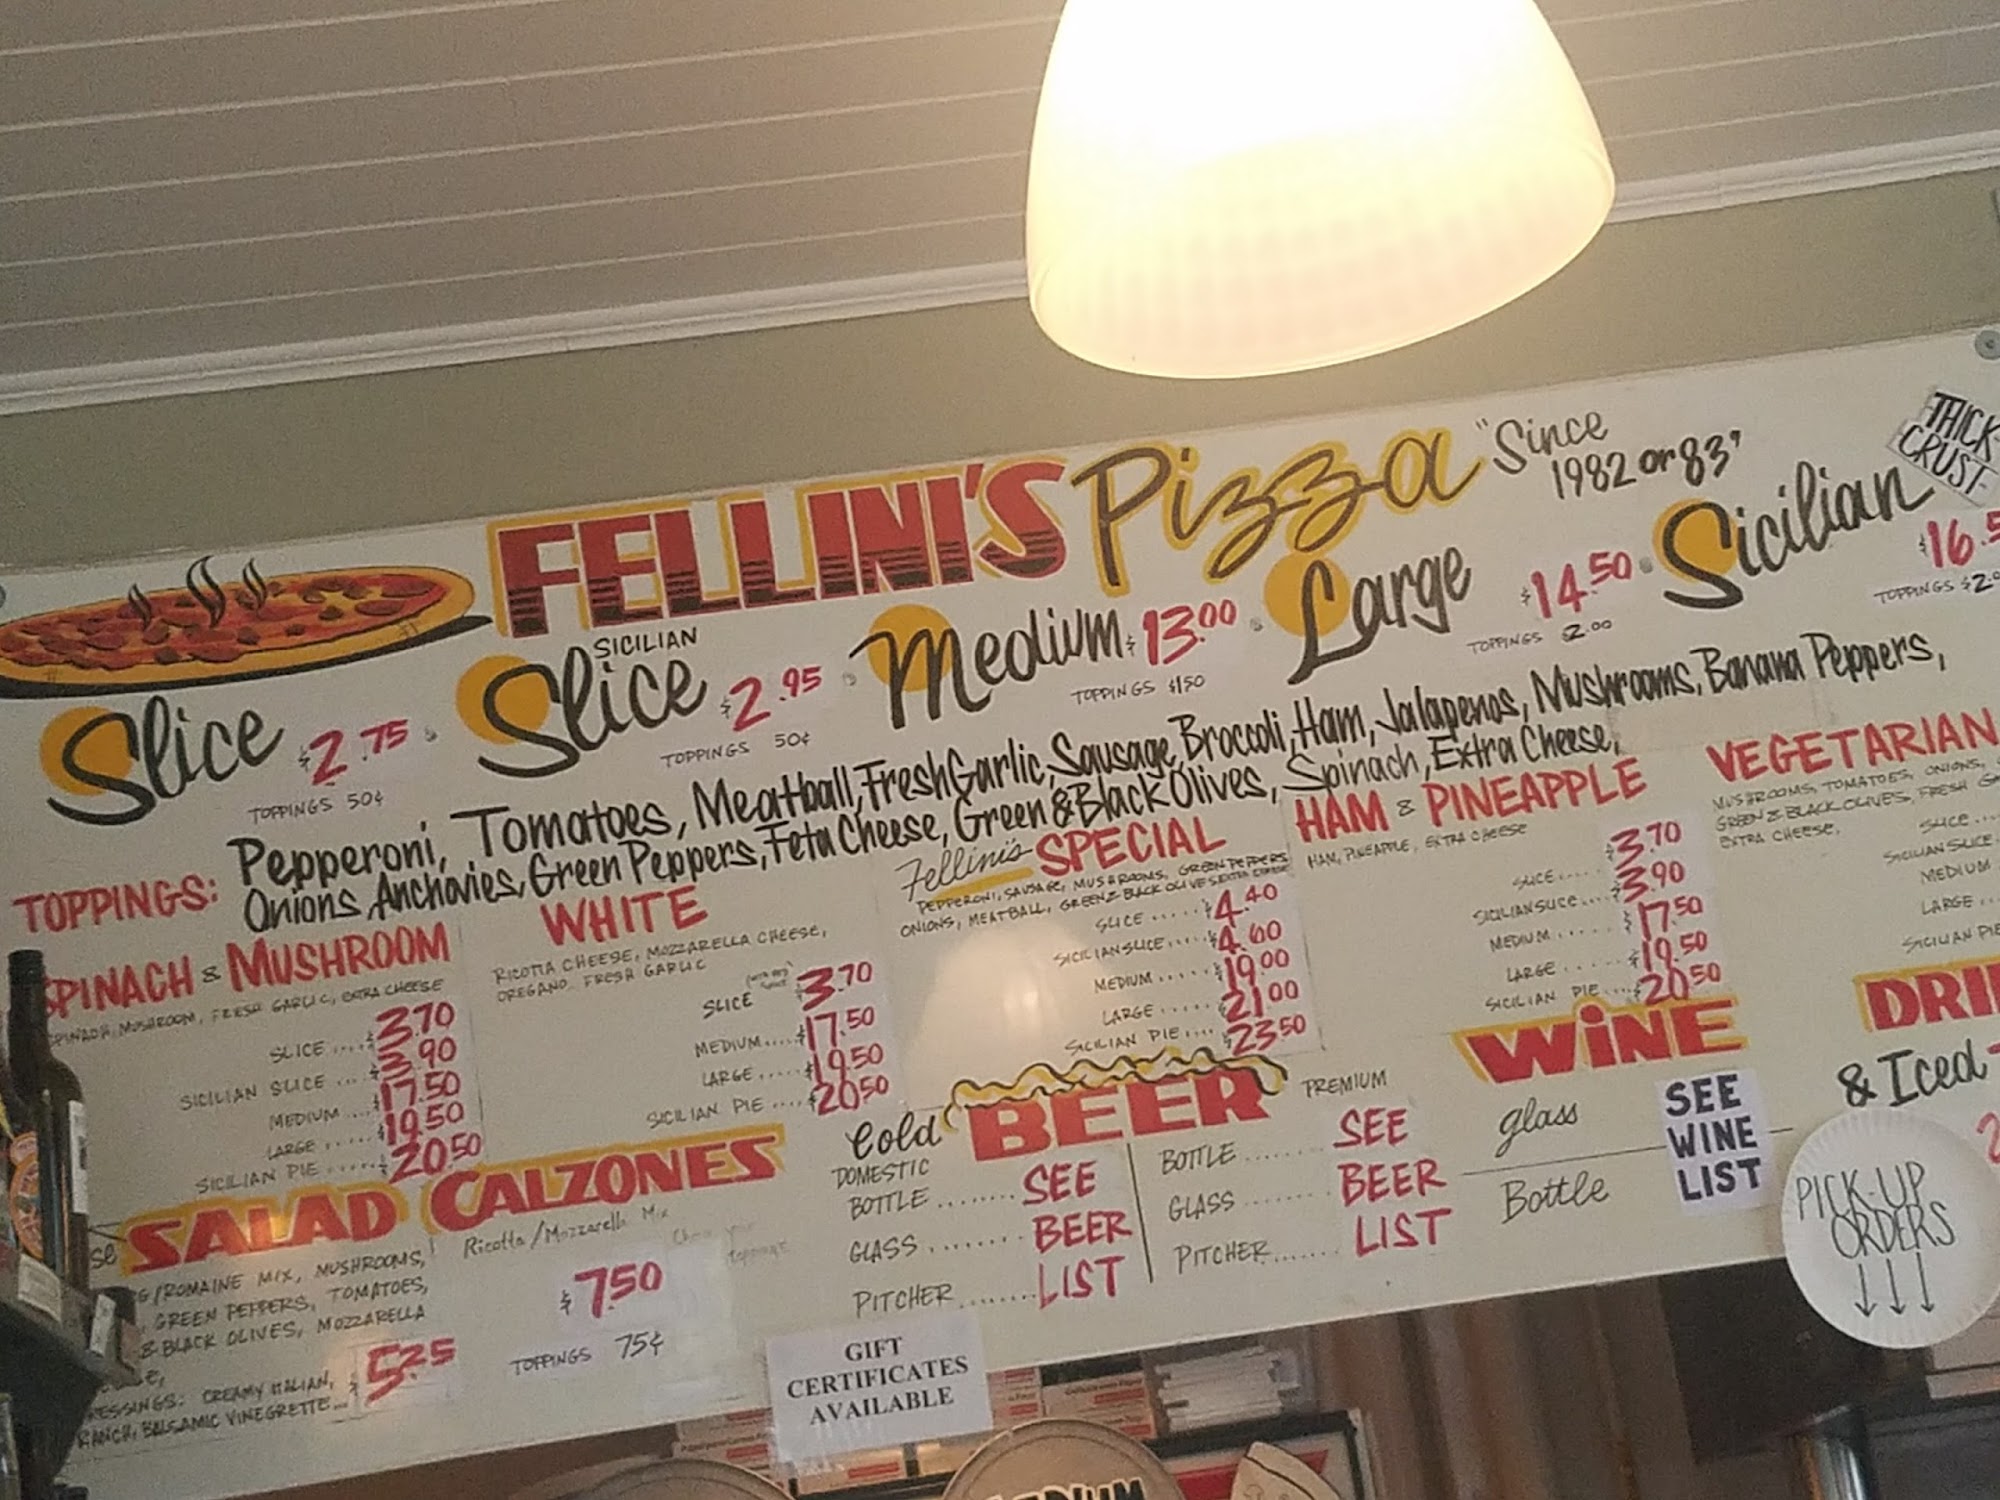 FELLINI'S Pizza "Since
1982 or 83"
THICK
CRUST
Slice $2.75
TOPPINGS 50¢
SICILIAN
Slice $2.95
TOPPINGS 50¢
Medium $13.00
TOPPINGS $1.50
Large $14.50
TOPPINGS $2.00
Sicilian
TOPPINGS
TOPPINGS: Pepperoni, Tomatoes, Meatball, Fresh Garlic, Sausage, Broccoli, Ham, Jalapenos, Mushrooms, Banana Peppers,
Onions, Anchovies, Green Peppers, Feta Cheese, Green & Black Olives, Spinach, Extra Cheese,
SPINACH & MUSHROOM
SPINACH, MUSHROOM, FRESH GARLIC, EXTRA CHEESE
SLICE .... $3.70
SICILIAN SLICE ... $3.90
MEDIUM .... $17.50
LARGE ..... $19.50
SICILIAN PIE ..... $20.50
WHITE
RICOTTA CHEESE, MOZZARELLA CHEESE,
OREGANO, FRESH GARLIC
SLICE $3.70
MEDIUM.... $17.50
LARGE ..... $19.50
SICILIAN PIE .... $20.50
Fellini's SPECIAL
PEPPERONI, SAUSAGE, MUSHROOMS, GREEN PEPPERS
ONIONS, MEATBALL, GREEN & BLACK OLIVES, EXTRA CHEESE
SLICE ..... $4.40
SICILIAN SLICE..... $4.60
MEDIUM ..... $19.00
LARGE ..... $21.00
SICILIAN PIE .... $23.50
HAM & PINEAPPLE
HAM, PINEAPPLE, EXTRA CHEESE
SLICE ..... $3.70
SICILIAN SLICE.... $3.90
MEDIUM ..... $17.50
LARGE ...... $19.50
SICILIAN PIE.... $20.50
VEGETARIAN
MUSHROOMS, TOMATOES, ONIONS,
GREEN & BLACK OLIVES, FRESH
EXTRA CHEESE,
SLICE....
SICILIAN SLICE..
MEDIUM
LARGE ...
SICILIAN PIE
SALAD
/ROMAINE MIX, MUSHROOMS,
, GREEN PEPPERS, TOMATOES,
& BLACK OLIVES, MOZZARELLA
CREAMY ITALIAN,
BALSAMIC VINEGRETTE... $5.25
CALZONES
Ricotta/Mozzarella Mix
$7.50
TOPPINGS 75¢
Cold BEER
DOMESTIC
BOTTLE ........ SEE
GLASS ......... BEER
PITCHER ........ LIST
PREMIUM
BOTTLE ........ SEE
GLASS ........ BEER
PITCHER ....... LIST
WINE
glass
Bottle
SEE
WINE
LIST
& Iced
PICK-UP
ORDERS
↓↓↓
GIFT
CERTIFICATES
AVAILABLE